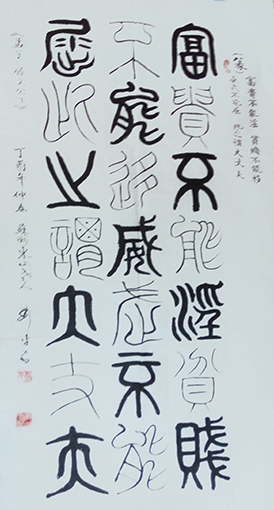 富貴不能淫 貧賤不能移
威武不能屈 此之謂大丈夫
富貴不能淫貧賤
不能移威武不能
屈此之謂大丈夫
丁酉年仲春